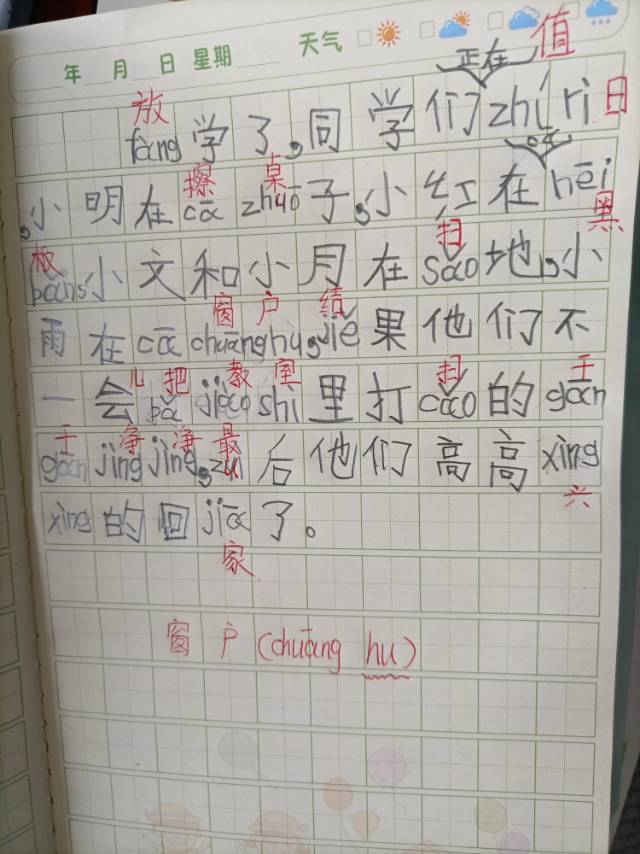 年 月 日 星期 天气
正在 值
放
fàng学了,同学们zhí rì 日
擦 桌
小明在cā zhuō子,小红在hēi
板 扫 黑
bǎn小文和小月在sǎo地,小
窗户 结
雨在cā chuāng hù,jié果他们不
儿 把 教室 扫 干
一会 bǎ jiào shì里打cǎo的gān
干净净 最
gān jìng jìng,zuì后他们高高xìng
兴
xìng的回jiā了。
家
窗户(chuāng hu)